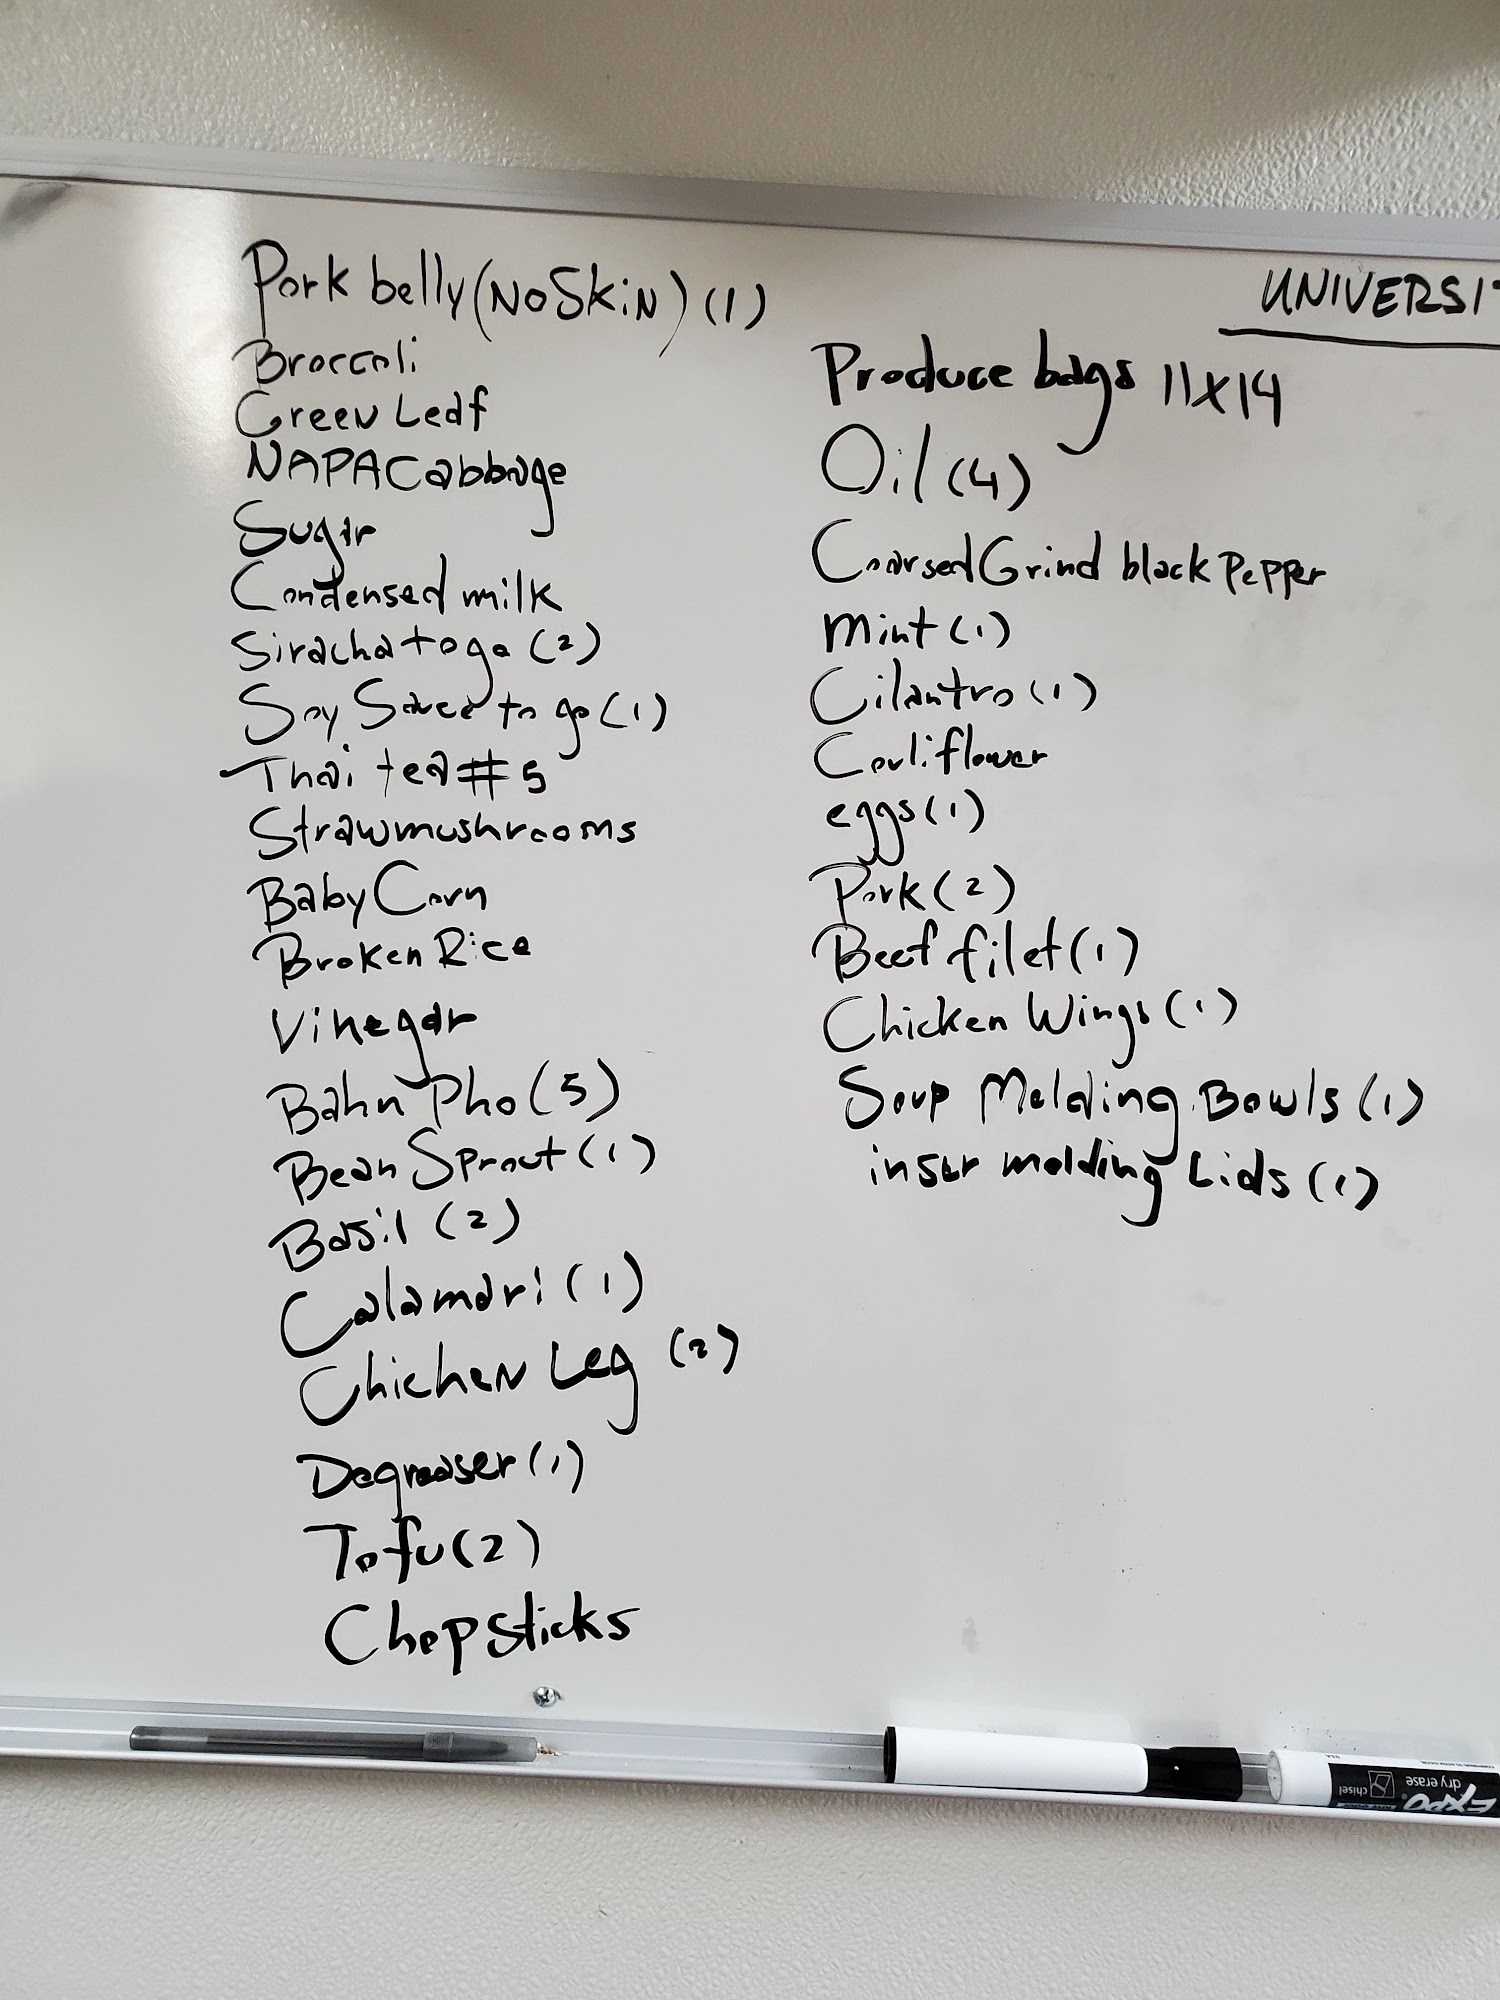 Pork belly (NO SKiN) (1)
Broccoli
Green Leaf
NAPA Cabbage
Sugar
Condensed milk
Siracha to go (2)
Soy Sauce to go (1)
Thai tea #5
Straw mushrooms
Baby Corn
Broken Rice
Vinegar
Bahn Pho (5)
Bean Sprout (1)
Basil (2)
Calamari (1)
Chicken Leg (2)
Degreaser (1)
Tofu (2)
Chopsticks
UNIVERSI
Produce bags 11x14
Oil (4)
Coarsed Grind black Pepper
mint (1)
Cilantro (1)
Couliflower
eggs (1)
Pork (2)
Beef filet (1)
Chicken Wings (1)
Soup Molding Bowls (1)
molding Lids (1)
EXPO
dry erase
chisel